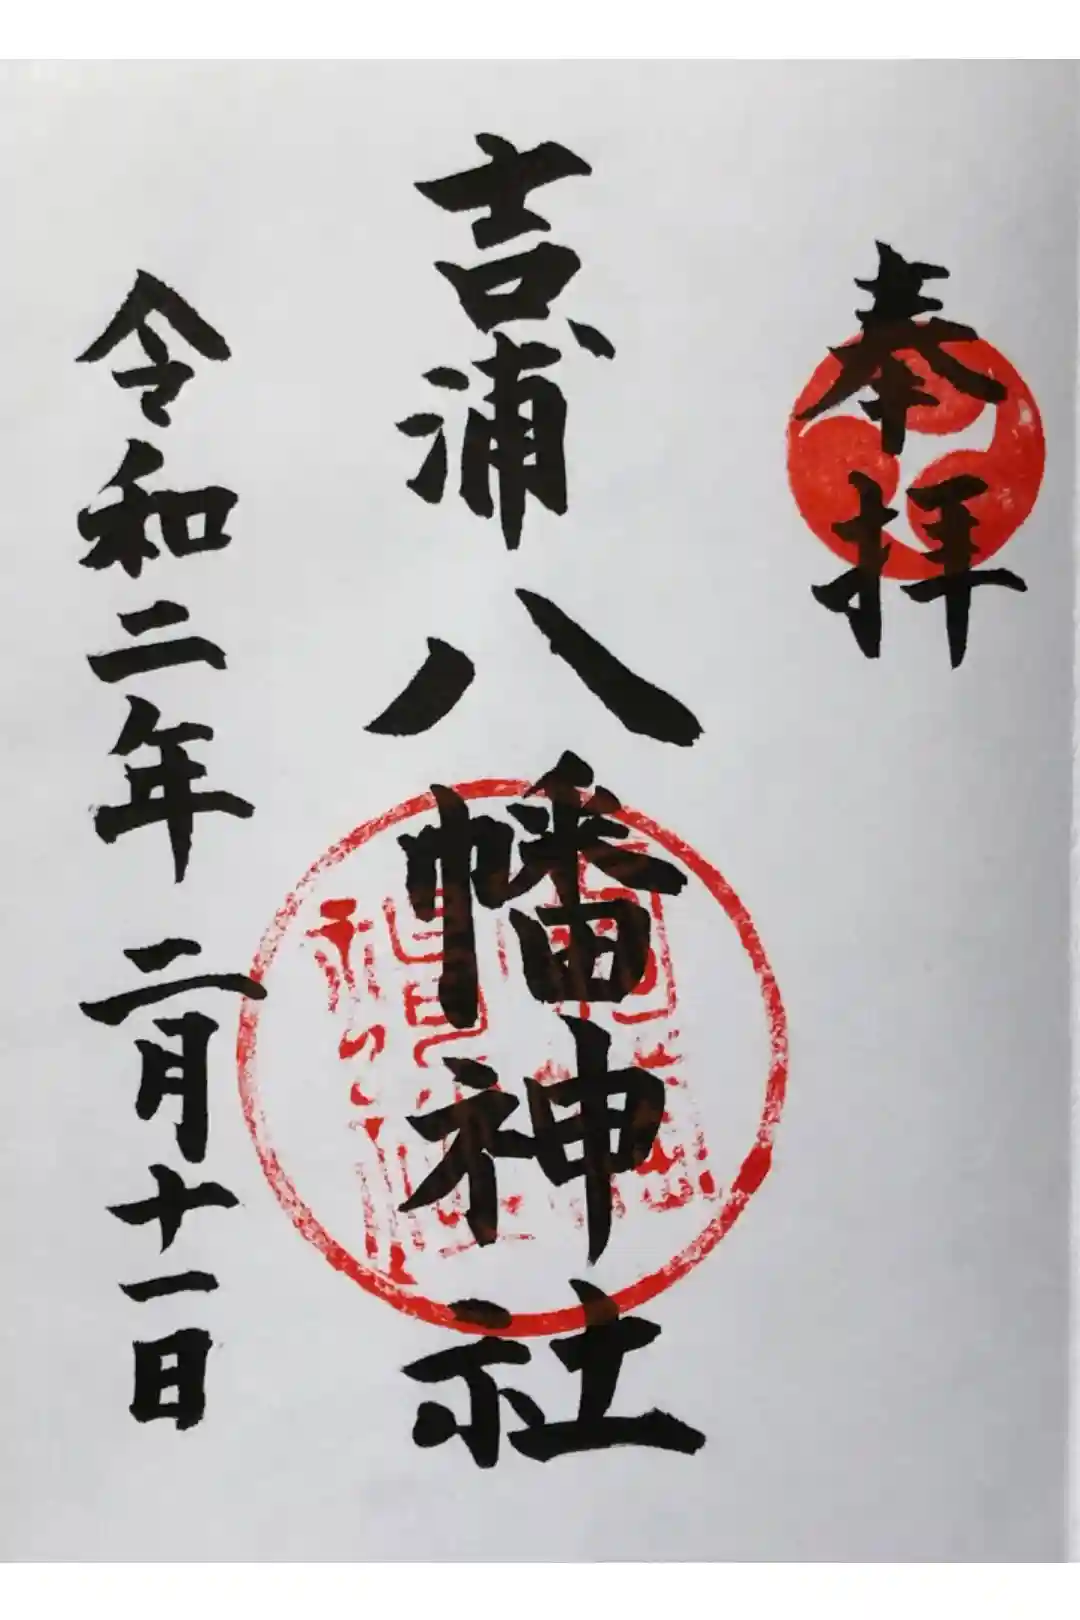 奉拝
吉浦八幡神社
令和二年二月十一日